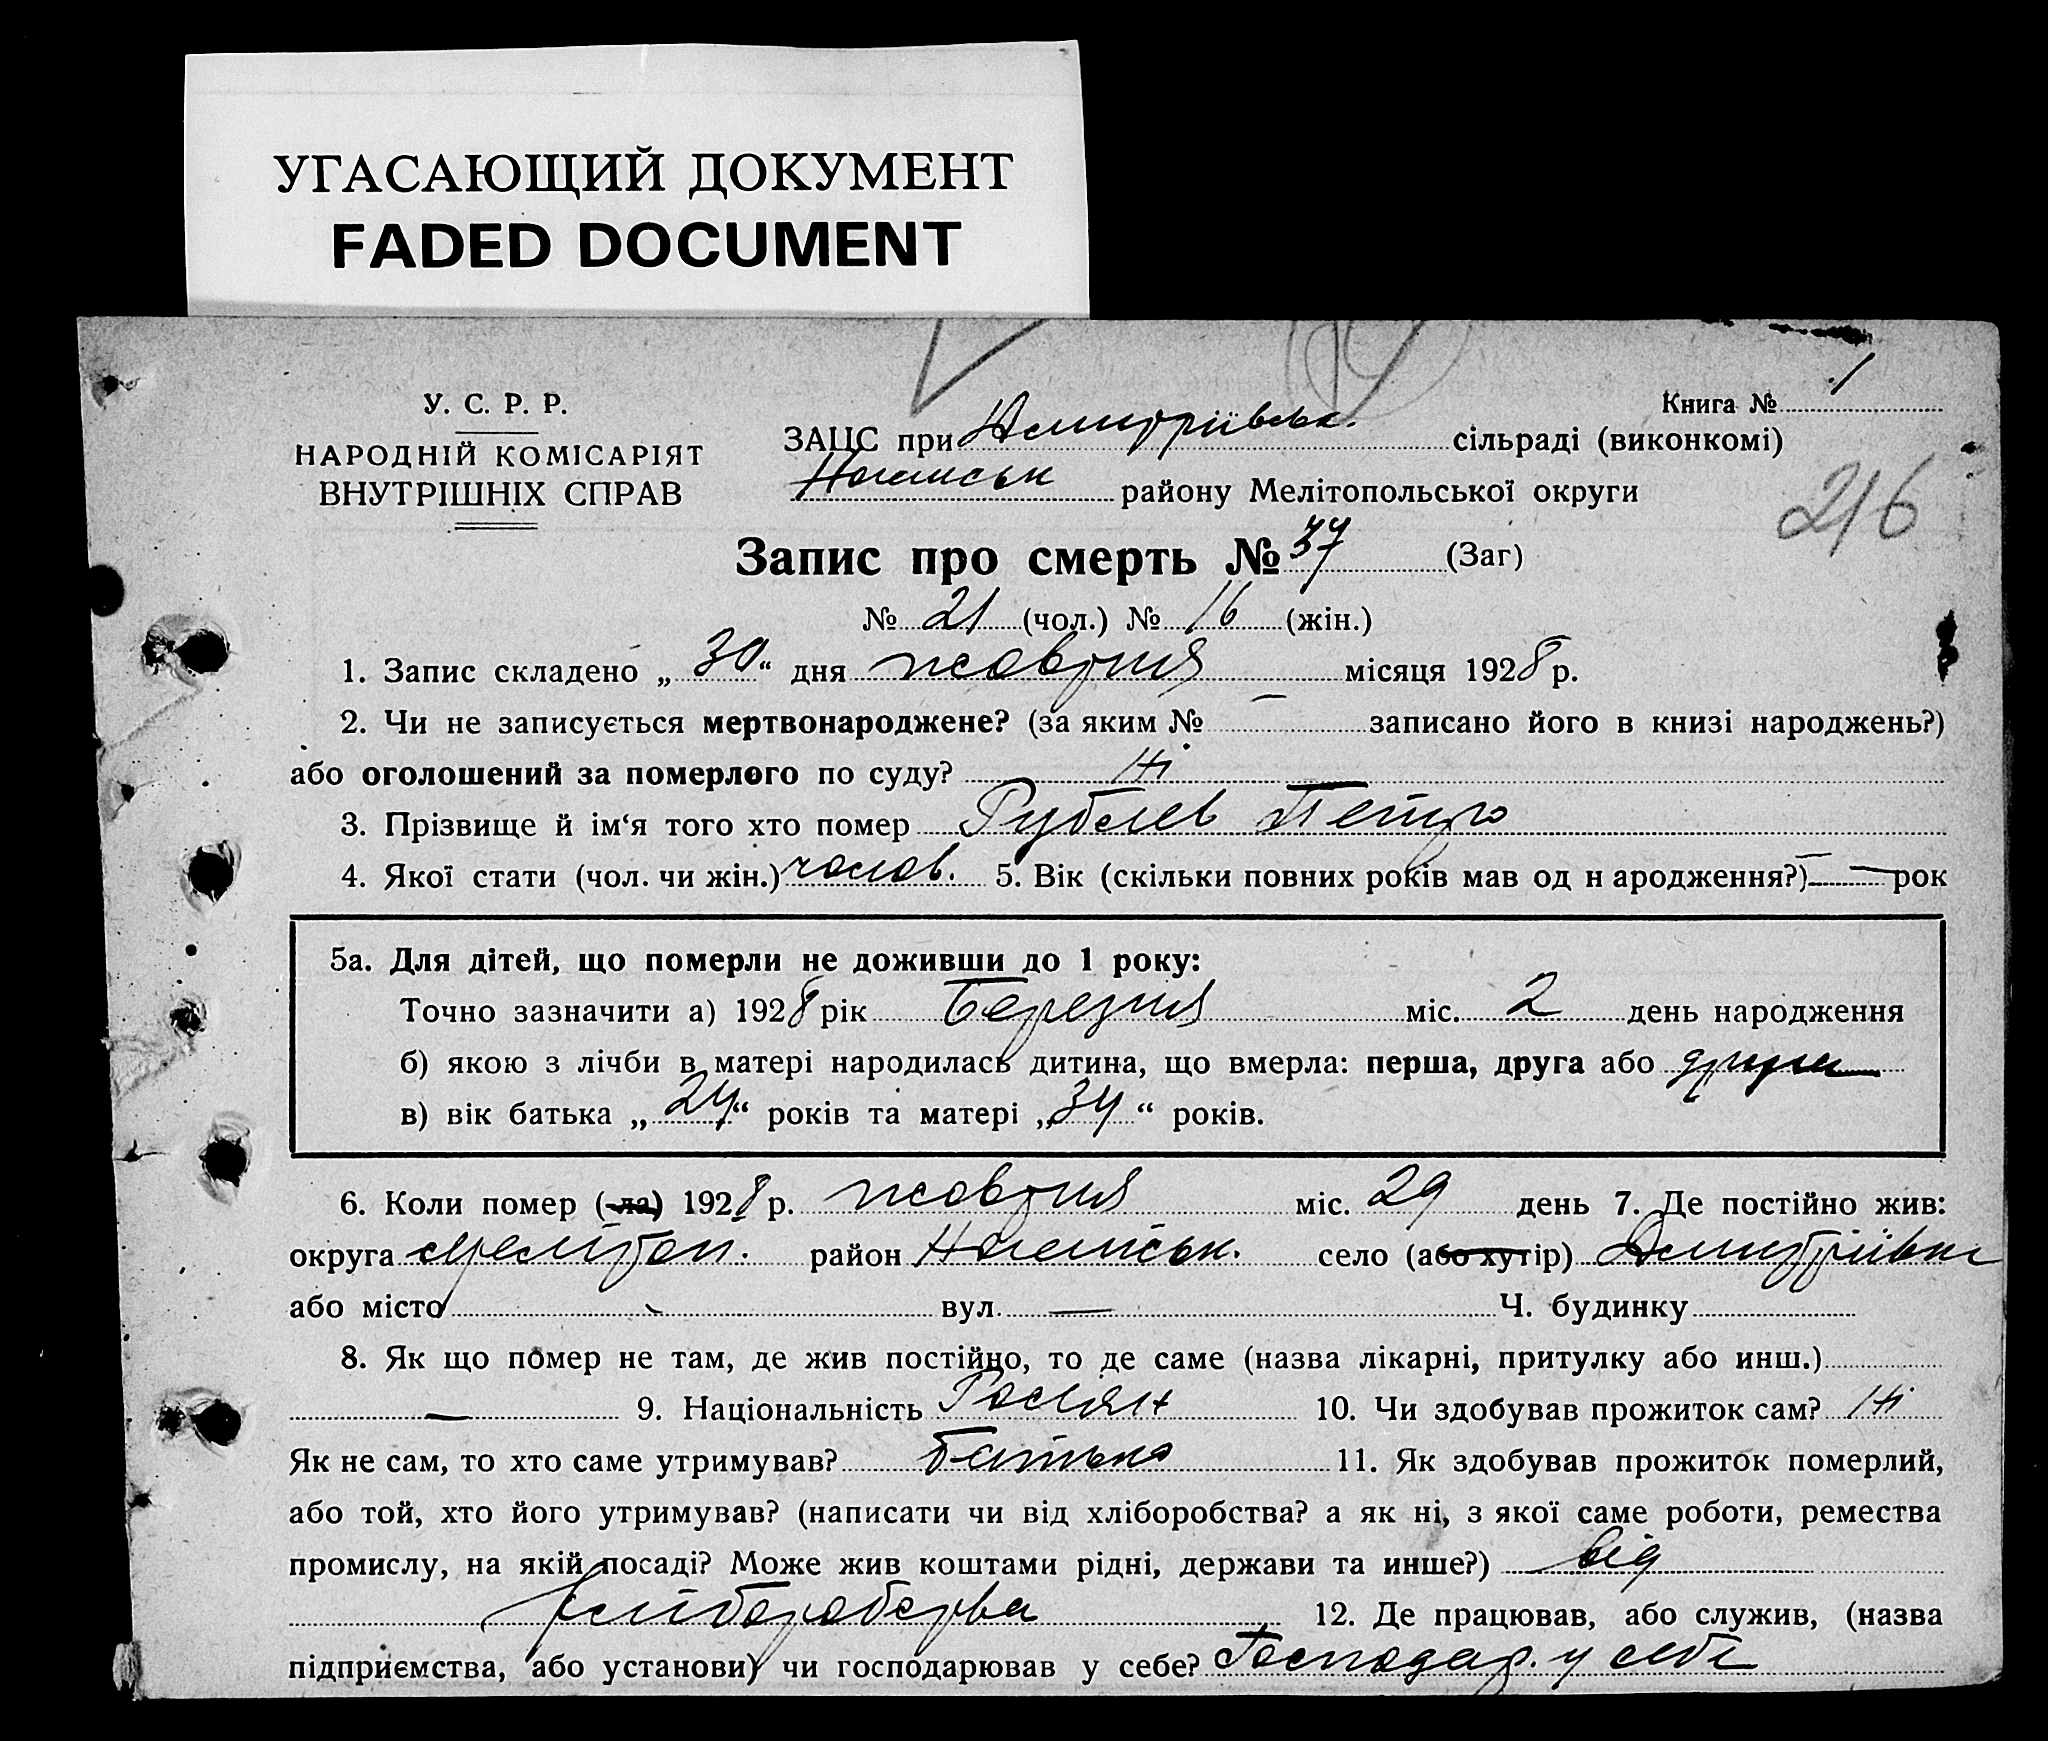 УГАСАЮЩИЙ ДОКУМЕНТ
FADED DOCUMENT
У. С. Р. Р.
НАРОДНІЙ КОМІСАРІЯТ
ВНУТРІШНІХ СПРАВ
Книга № 1
ЗАЦС при Дмитріївськ. сільраді (виконкомі)
Ногайськ району Мелітопольської округи
216
Запис про смерть № 37 (Заг)
№ 21 (чол.) № 16 (жін.)
1. Запис складено „ 30 “ дня жовтня місяця 1928 р.
2. Чи не записується мертвонароджене? (за яким № — записано його в книзі народжень?)
або оголошений за померлого по суду? Ні
3. Прізвище й ім‘я того хто помер Рублев Петро
4. Якої стати (чол. чи жін.) чолов. 5. Вік (скільки повних років мав од н ародження?) — рок
5а. Для дітей, що померли не доживши до 1 року:
Точно зазначити а) 1928 рік Березня міс. 2 день народження
б) якою з лічби в матері народилась дитина, що вмерла: перша, друга або друга
в) вік батька „ 24 “ років та матері „ 34 “ років.
6. Коли помер (-ла) 1928 р. жовтня міс. 29 день 7. Де постійно жив:
округа Мелітоп. район Ногайськ. село (або хутір) Дмитріївка
або місто вул. — Ч. будинку
8. Як що помер не там, де жив постійно, то де саме (назва лікарні, притулку або инш.)
— 9. Національність Росіян 10. Чи здобував прожиток сам? Ні
Як не сам, то хто саме утримував? Батько 11. Як здобував прожиток померлий,
або той, хто його утримував? (написати чи від хліборобства? а як ні, з якої саме роботи, ремества
промислу, на якій посаді? Може жив коштами рідні, держави та инше?) від
хліборобства 12. Де працював, або служив, (назва
підприємства, або установи) чи господарював у себе? Господар. у себе